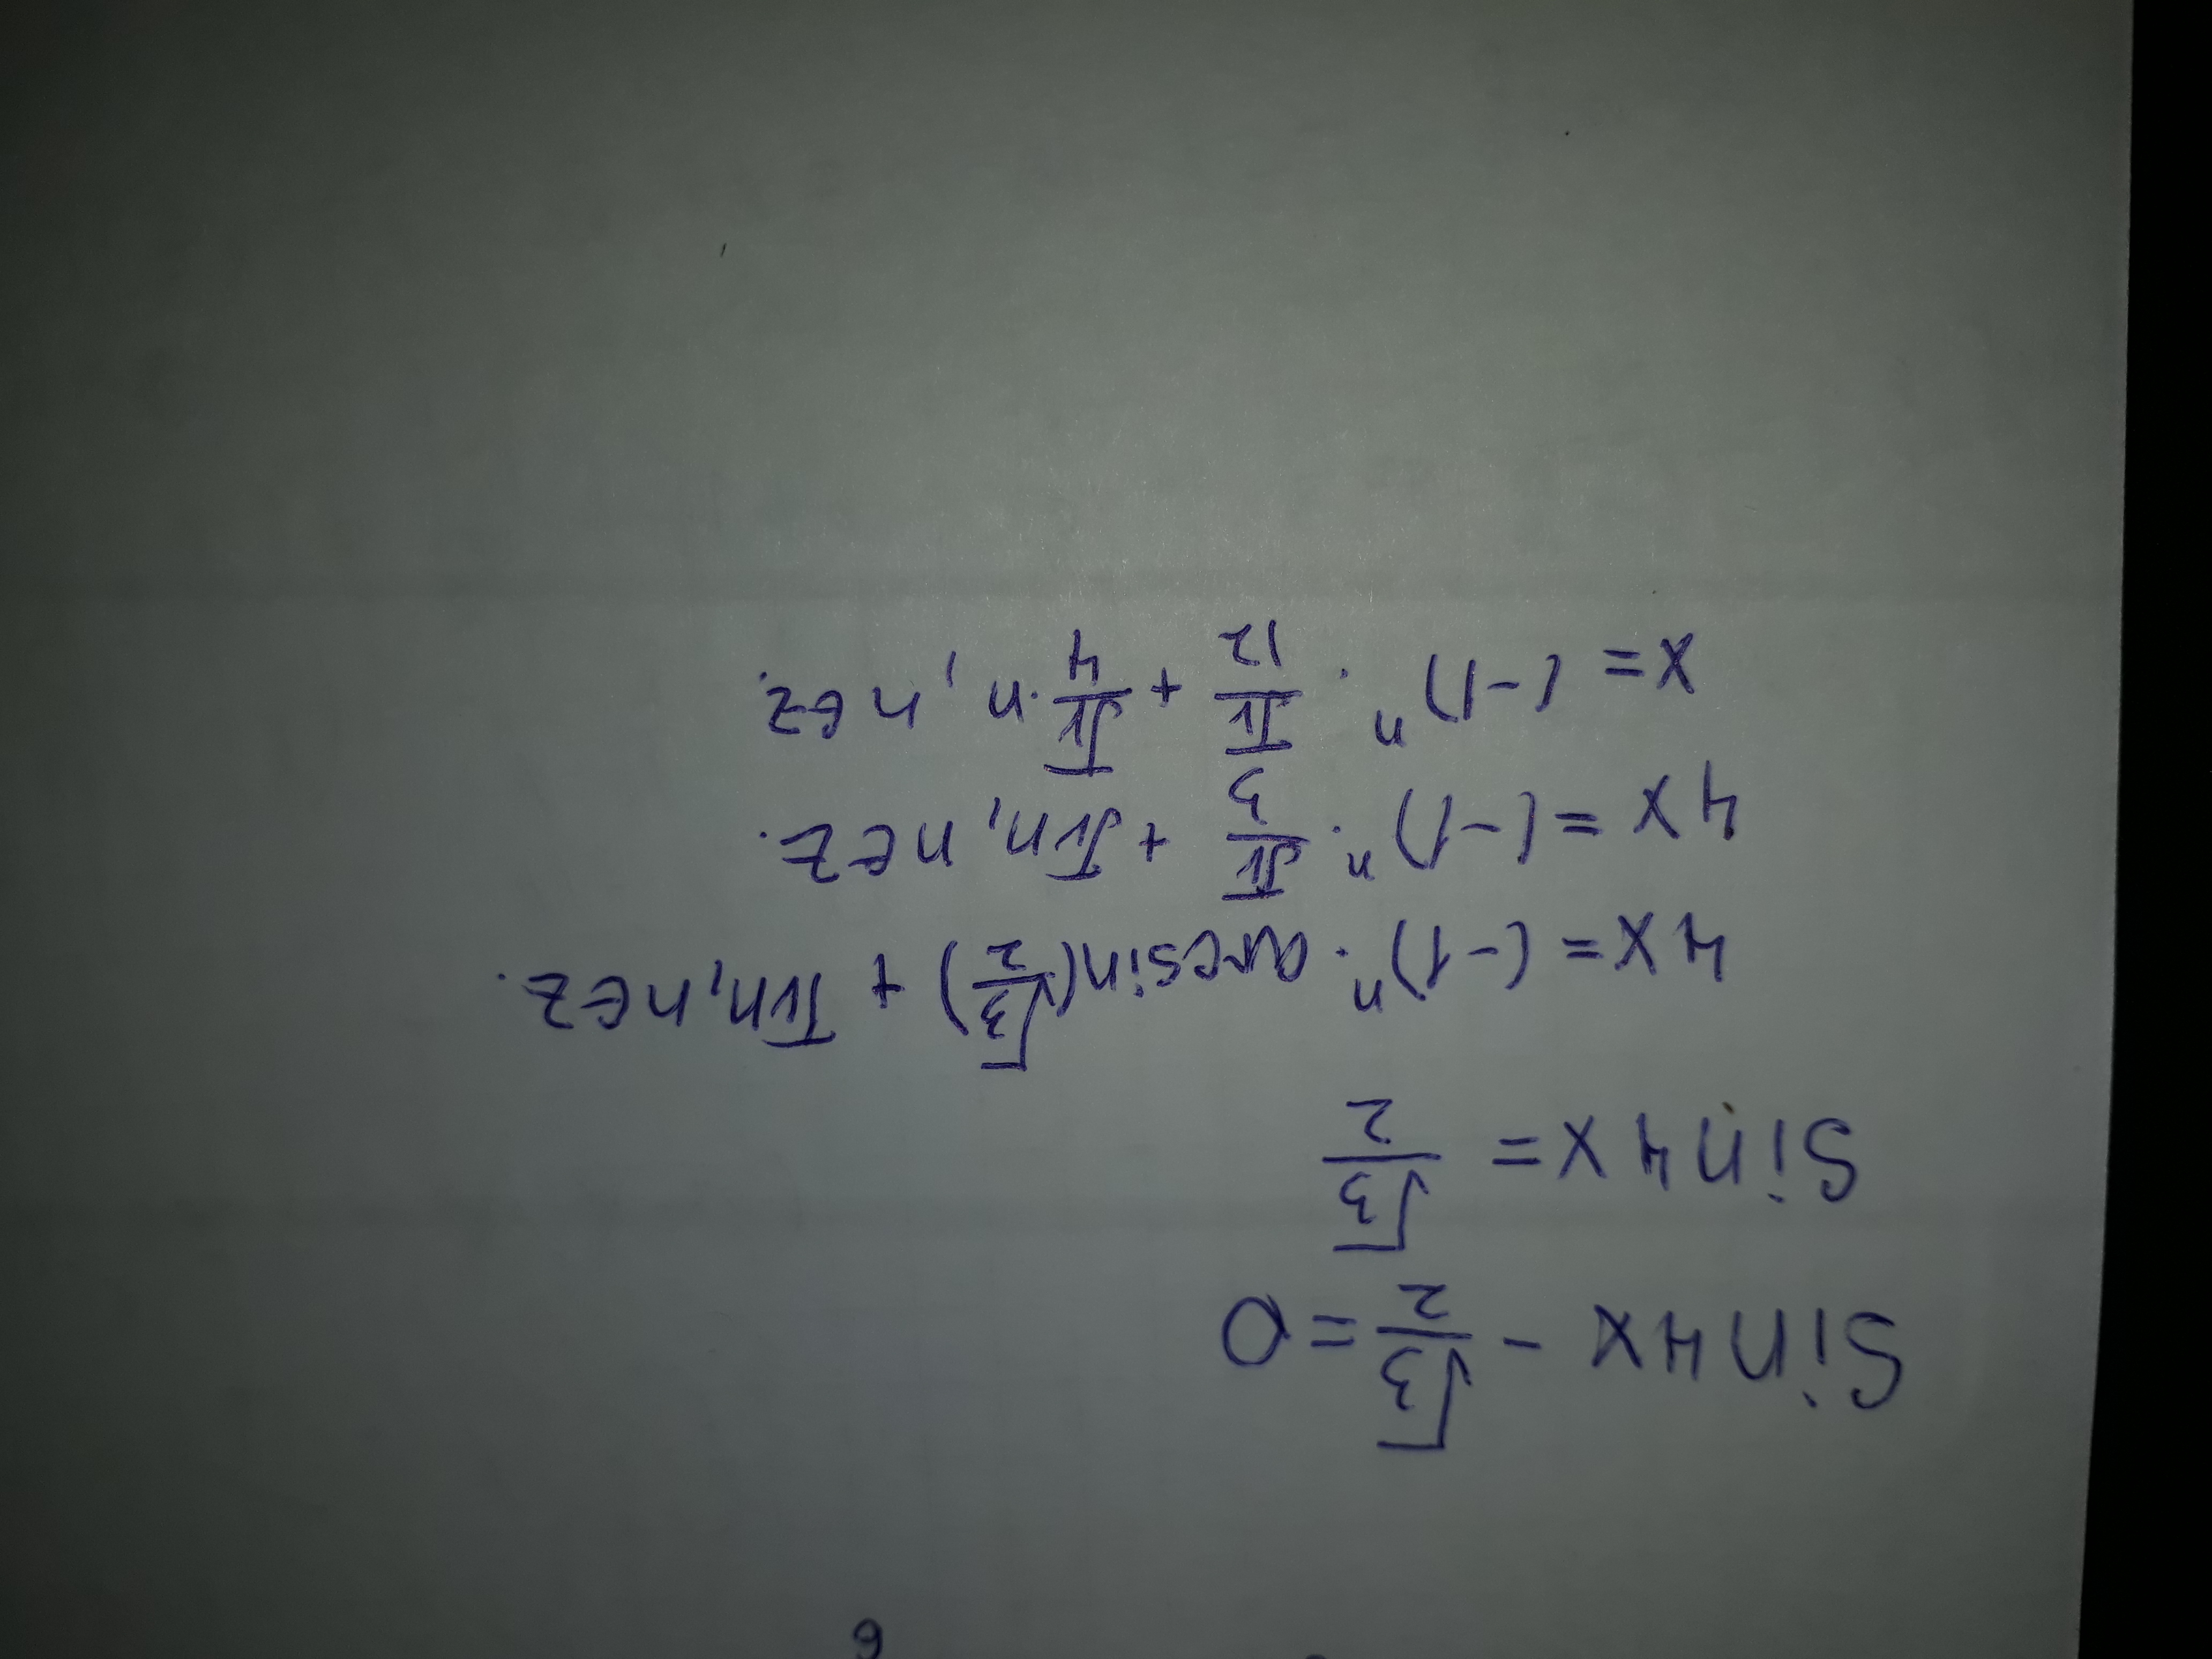 sin4x - √3/2 = 0
sin4x = √3/2
4x = (-1)ⁿ · arcsin(√3/2) + πn, n∈z.
4x = (-1)ⁿ · π/3 + πn, n∈z.
x = (-1)ⁿ · π/12 + π/4 · n, n∈z.